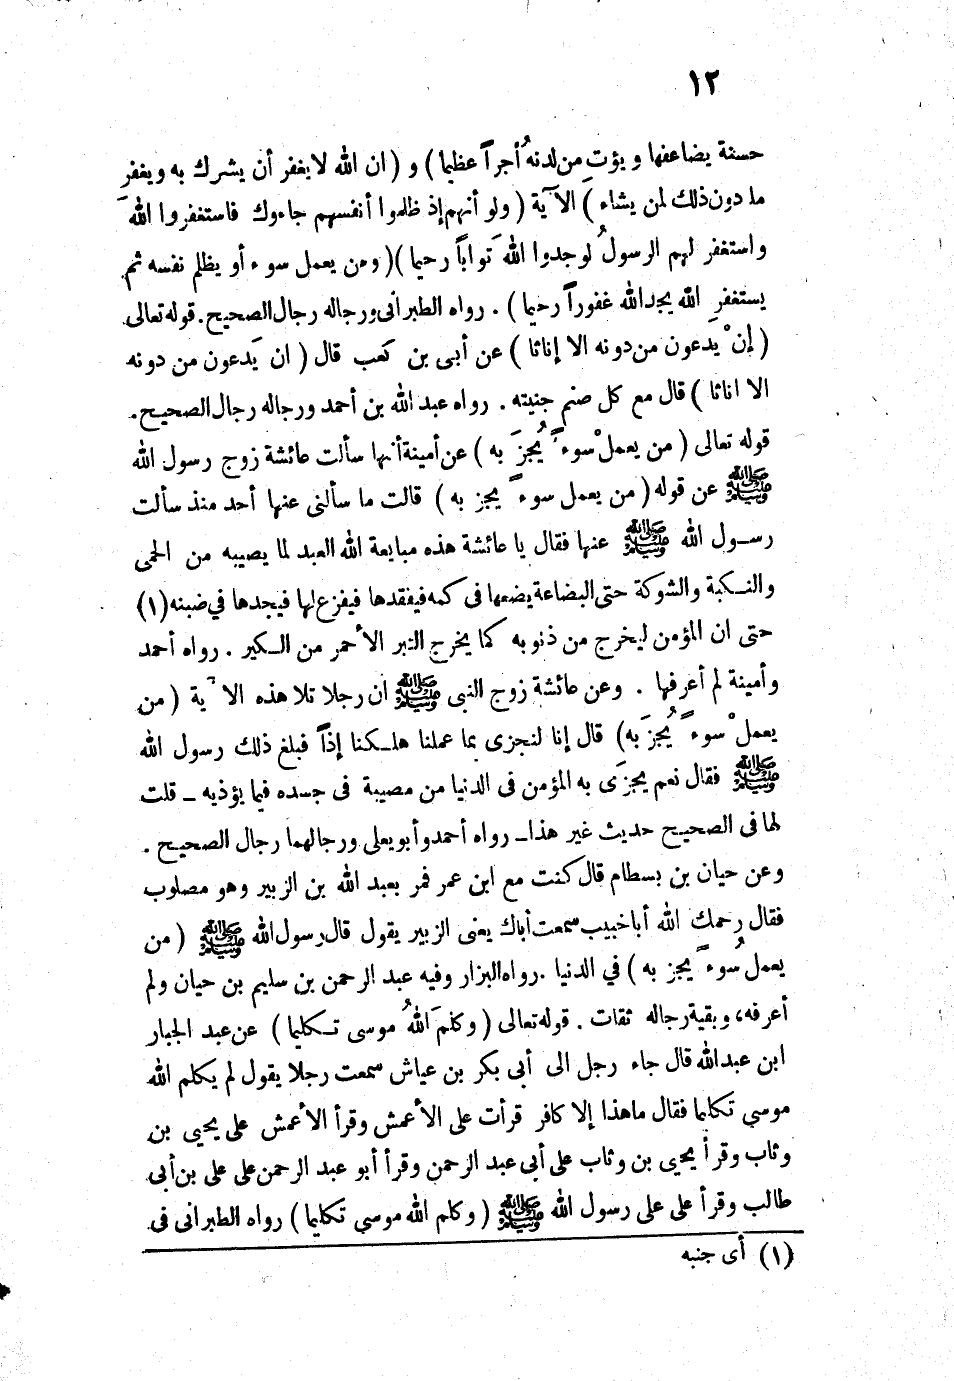 ١٢
حسنة يضاعفها ويؤت من لدنهُ أجراً عظيما ) و ( ان الله لا يغفر أن يشرك به ويغفر
ما دون ذلك لمن يشاء ) الآية ( ولو أنهم إذ ظلموا أنفسهم جاءوك فاستغفروا اللهَ
واستغفر لهم الرسولُ لوجدوا اللهَ تواباً رحيما )( ومن يعمل سوء أو يظلم نفسه ثم
يستغفر الله يجد الله غفوراً رحيما ) . رواه الطبرانى ورجاله رجال الصحيح . قوله تعالى
( إنْ يَدعون من دونه الا إناثا ) عن أبى بن كعب قال ( ان يَدعون من دونه
الا اناثا ) قال مع كل صنم جنيته . رواه عبد الله بن أحمد ورجاله رجال الصحيح .
قوله تعالى ( من يعملْ سوءاً يُجزَ به ) عن أمينة أنها سألت عائشة زوج رسول الله
ﷺ عن قوله ( من يعمل سوءاً يجز به ) قالت ما سألنى عنها أحد منذ سألت
رسـول الله ﷺ عنها فقال يا عائشة هذه مبايعة الله العبد لما يصيبه من الحمى
والنـكبة والشوكة حتى البضاعة يضعها فى كمه فيفقدها فيفزع لها فيجدها في ضبنه (١)
حتى ان المؤمن ليخرج من ذنوبه كما يخرج التبر الأحمر من الـكير . رواه أحمد
وأمينة لم أعرفها . وعن عائشة زوج النبى ﷺ ان رجلا تلا هذه الآية ( من
يعملْ سوءاً يُجزَ به) قال إنا لنجزى بما عملنا هلـكنا إذاً فبلغ ذلك رسول الله
ﷺ فقال نعم يجزَى به المؤمن فى الدنيا من مصيبة فى جسده فيما يؤذيه ـ قلت
لها فى الصحيح حديث غير هذا ـ رواه أحمد وأبو يعلى ورجالهما رجال الصحيح .
وعن حيان بن بسطام قال كنت مع ابن عمر فمر بعبد الله بن الزبير وهو مصلوب
فقال رحمك الله أبا خبيب سمعت أباك يعنى الزبير يقول قال رسول الله ﷺ ( من
يعمل سُوءاً يجز به ) في الدنيا . رواه البزار وفيه عبد الرحمن بن سليم بن حيان ولم
أعرفه، وبقية رجاله ثقات . قوله تعالى ( وكلمَ اللهُ موسى تـكليما ) عن عبد الجبار
ابن عبد الله قال جاء رجل الى أبى بكر بن عياش سمعت رجلا يقول لم يكلم الله
موسي تكليما فقال ما هذا إلا كافر قرأت على الأعمش وقرأ الأعمش على يحيى بن
وثاب وقرأ يحيى بن وثاب على أبي عبد الرحمن وقرأ أبو عبد الرحمن على على بن أبى
طالب وقرأ على على رسول الله ﷺ ( وكلم الله موسي تكليما ) رواه الطبرانى فى
(١) أى جنبه